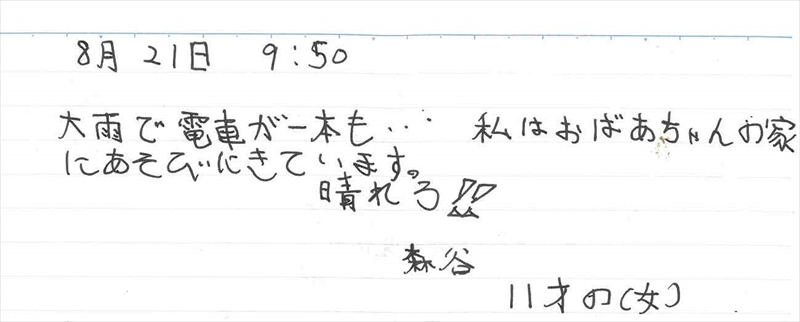 8月21日 9:50
大雨で電車が一本も… 私はおばあちゃんの家
にあそびにきています。
晴れろ!!
森谷
11才の(女)